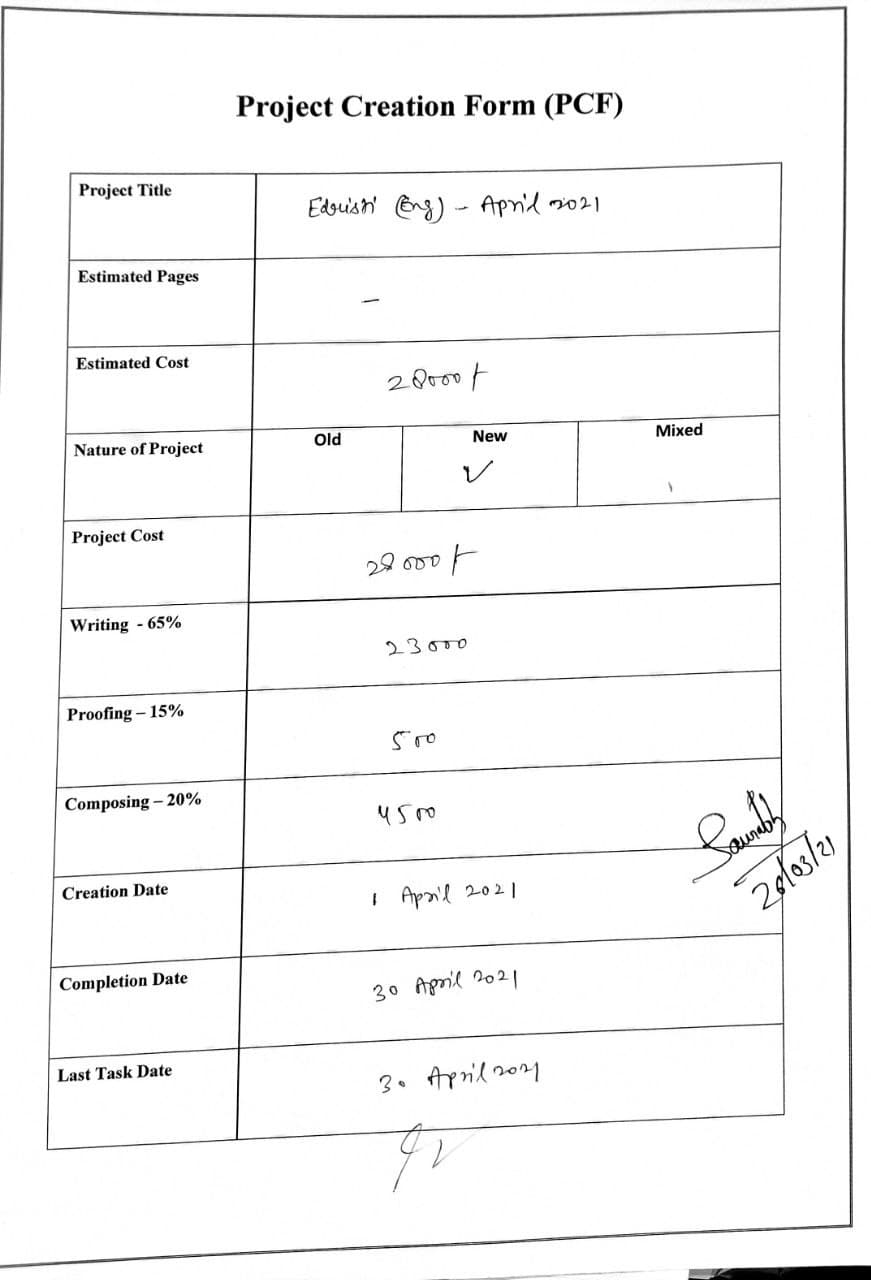 Project Creation Form (PCF)
Project Title
Edristi (Eng) - April 2021
Estimated Pages
-
Estimated Cost
28000 t
Nature of Project
Old
New
Mixed
✓
Project Cost
28000 t
Writing - 65%
23000
Proofing – 15%
500
Composing – 20%
4500
Saurabh
Creation Date
1 April 2021
26/03/21
Completion Date
30 April 2021
Last Task Date
30 April 2021